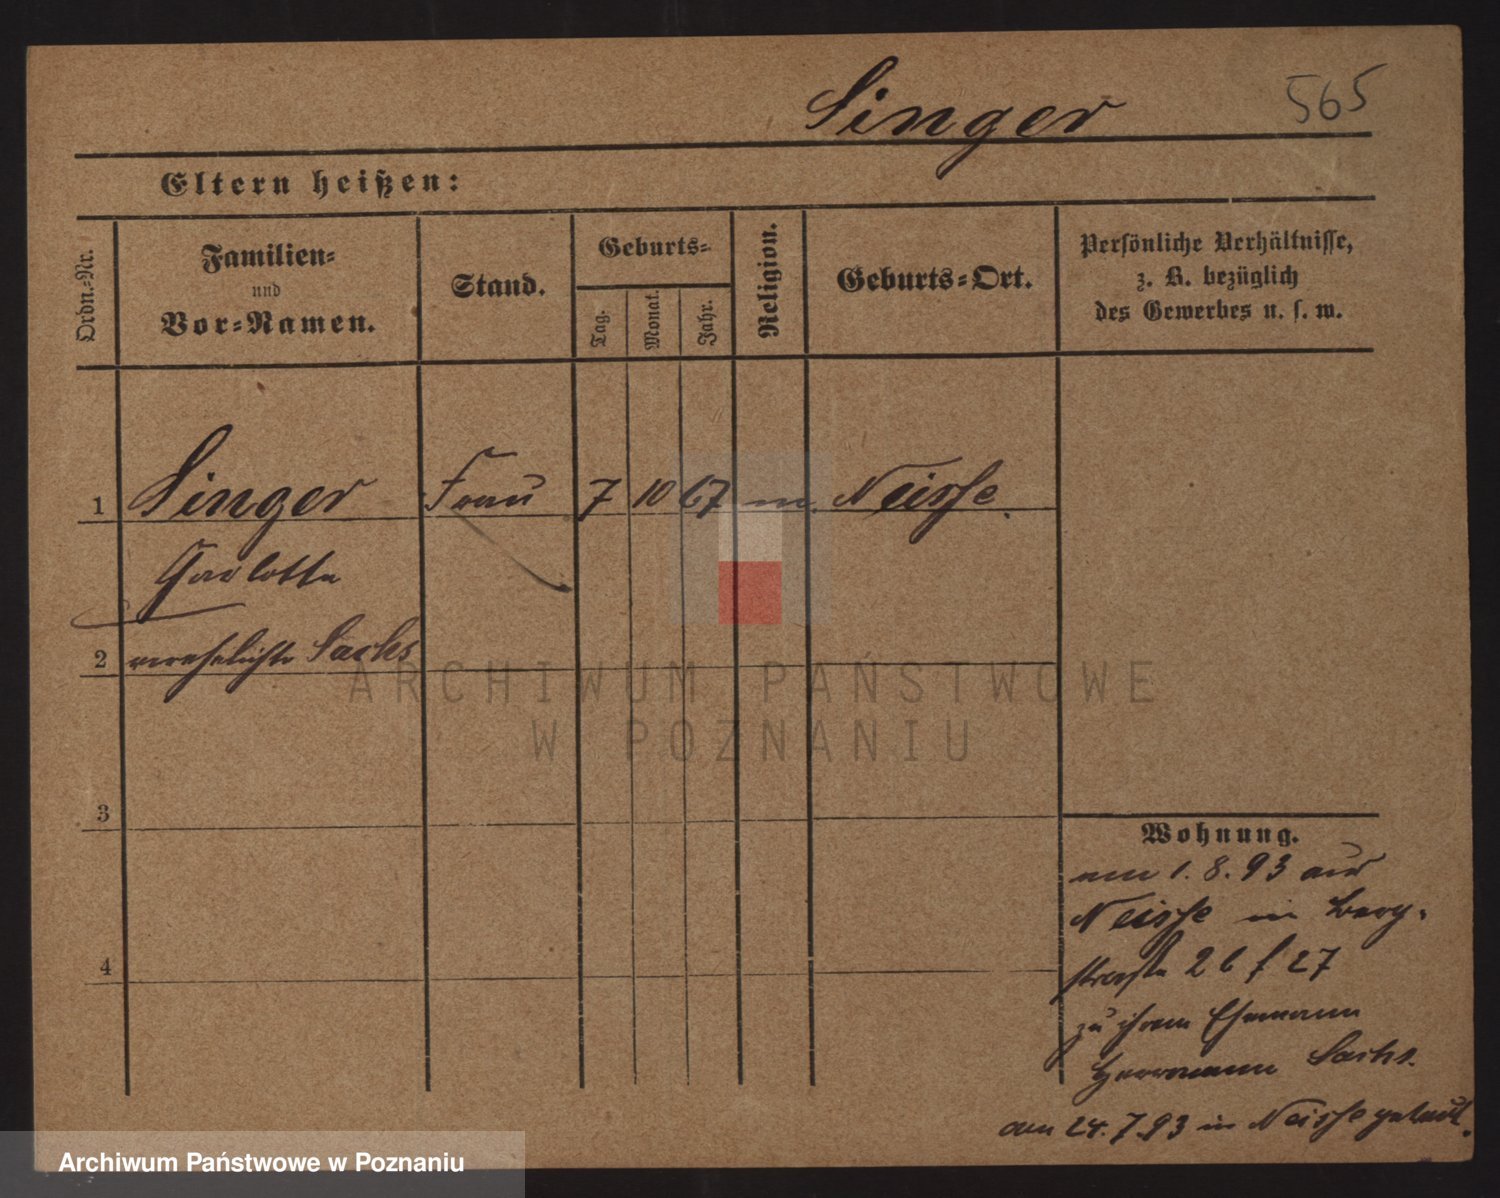 Singer 565
Eltern heißen:
Ordn.-Nr.
Familien-
und
Vor-Namen.
Stand.
Geburts-
Tag.
Monat.
Jahr.
Religion.
Geburts-Ort.
Persönliche Verhältnisse,
z. B. bezüglich
des Gewerbes u. s. w.
1 Singer Frau 7 10 67 m. Neisse.
Carlotta
2 verehelichte Sachs
3
4
Wohnung.
am 1. 8. 93 aus
Neisse in Berg-
straße 2 b / 27
zu ihrem Ehemann
Herrmann Sachs.
am 24. 7. 93 in Neisse getraut.
ARCHIWUM PAŃSTWOWE
W POZNANIU
Archiwum Państwowe w Poznaniu